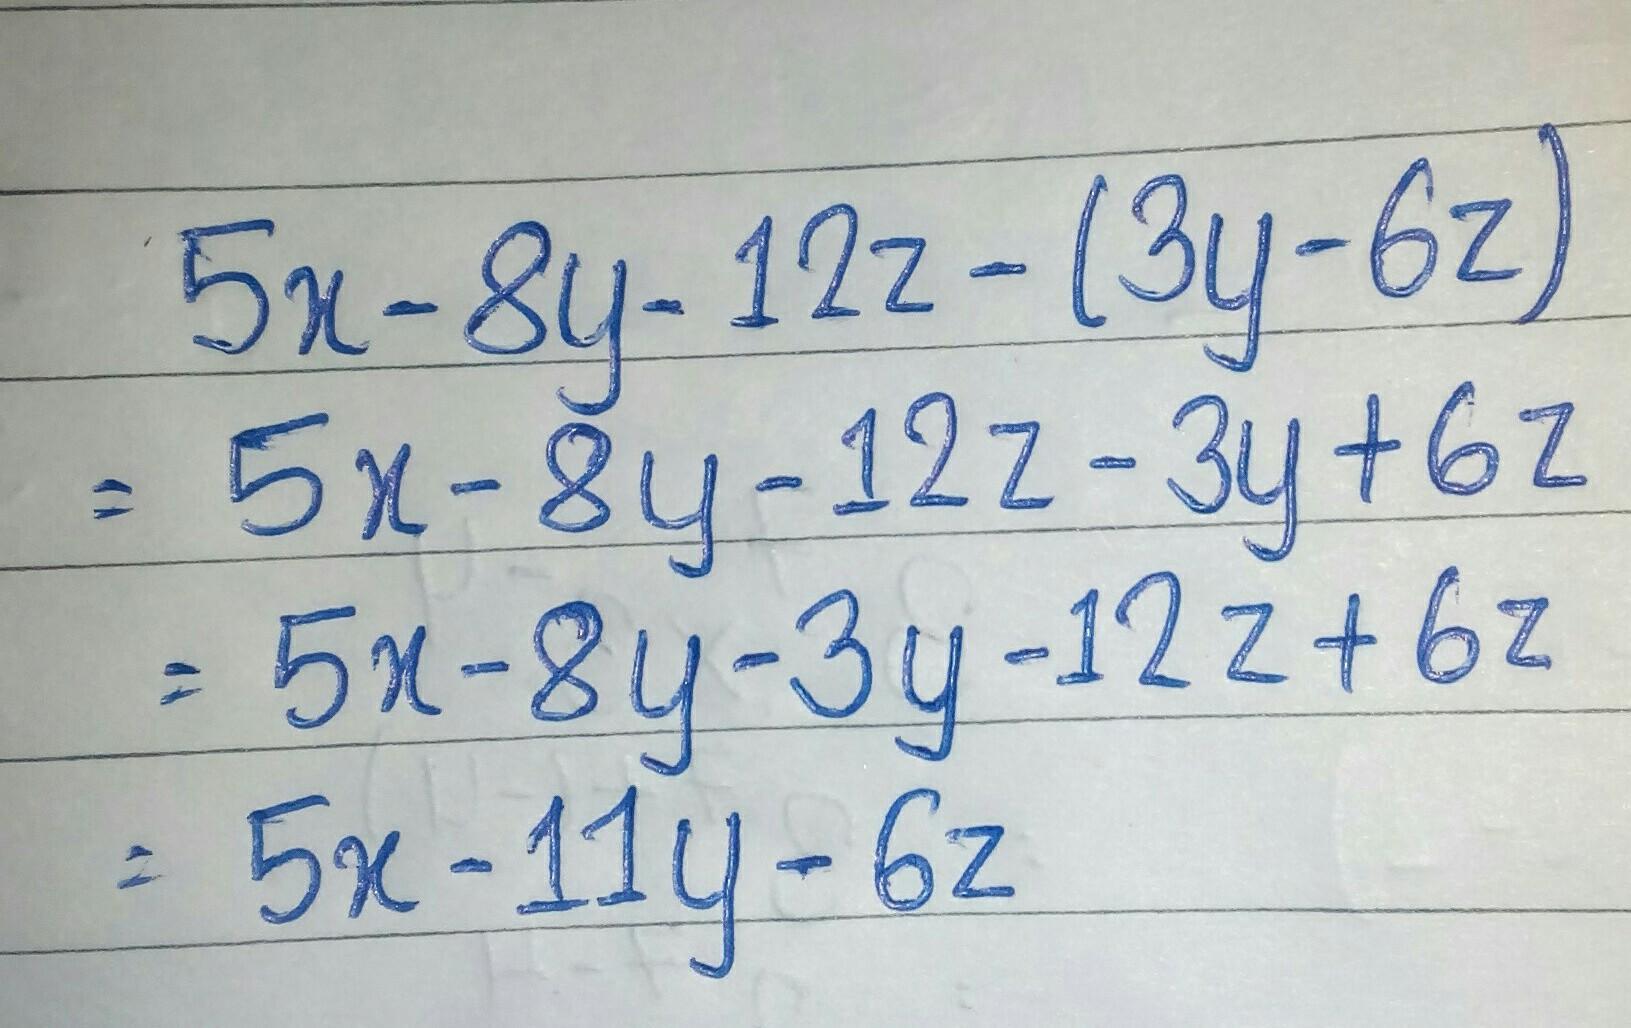 5x - 8y - 12z - (3y - 6z)
= 5x - 8y - 12z - 3y + 6z
= 5x - 8y - 3y - 12z + 6z
= 5x - 11y - 6z